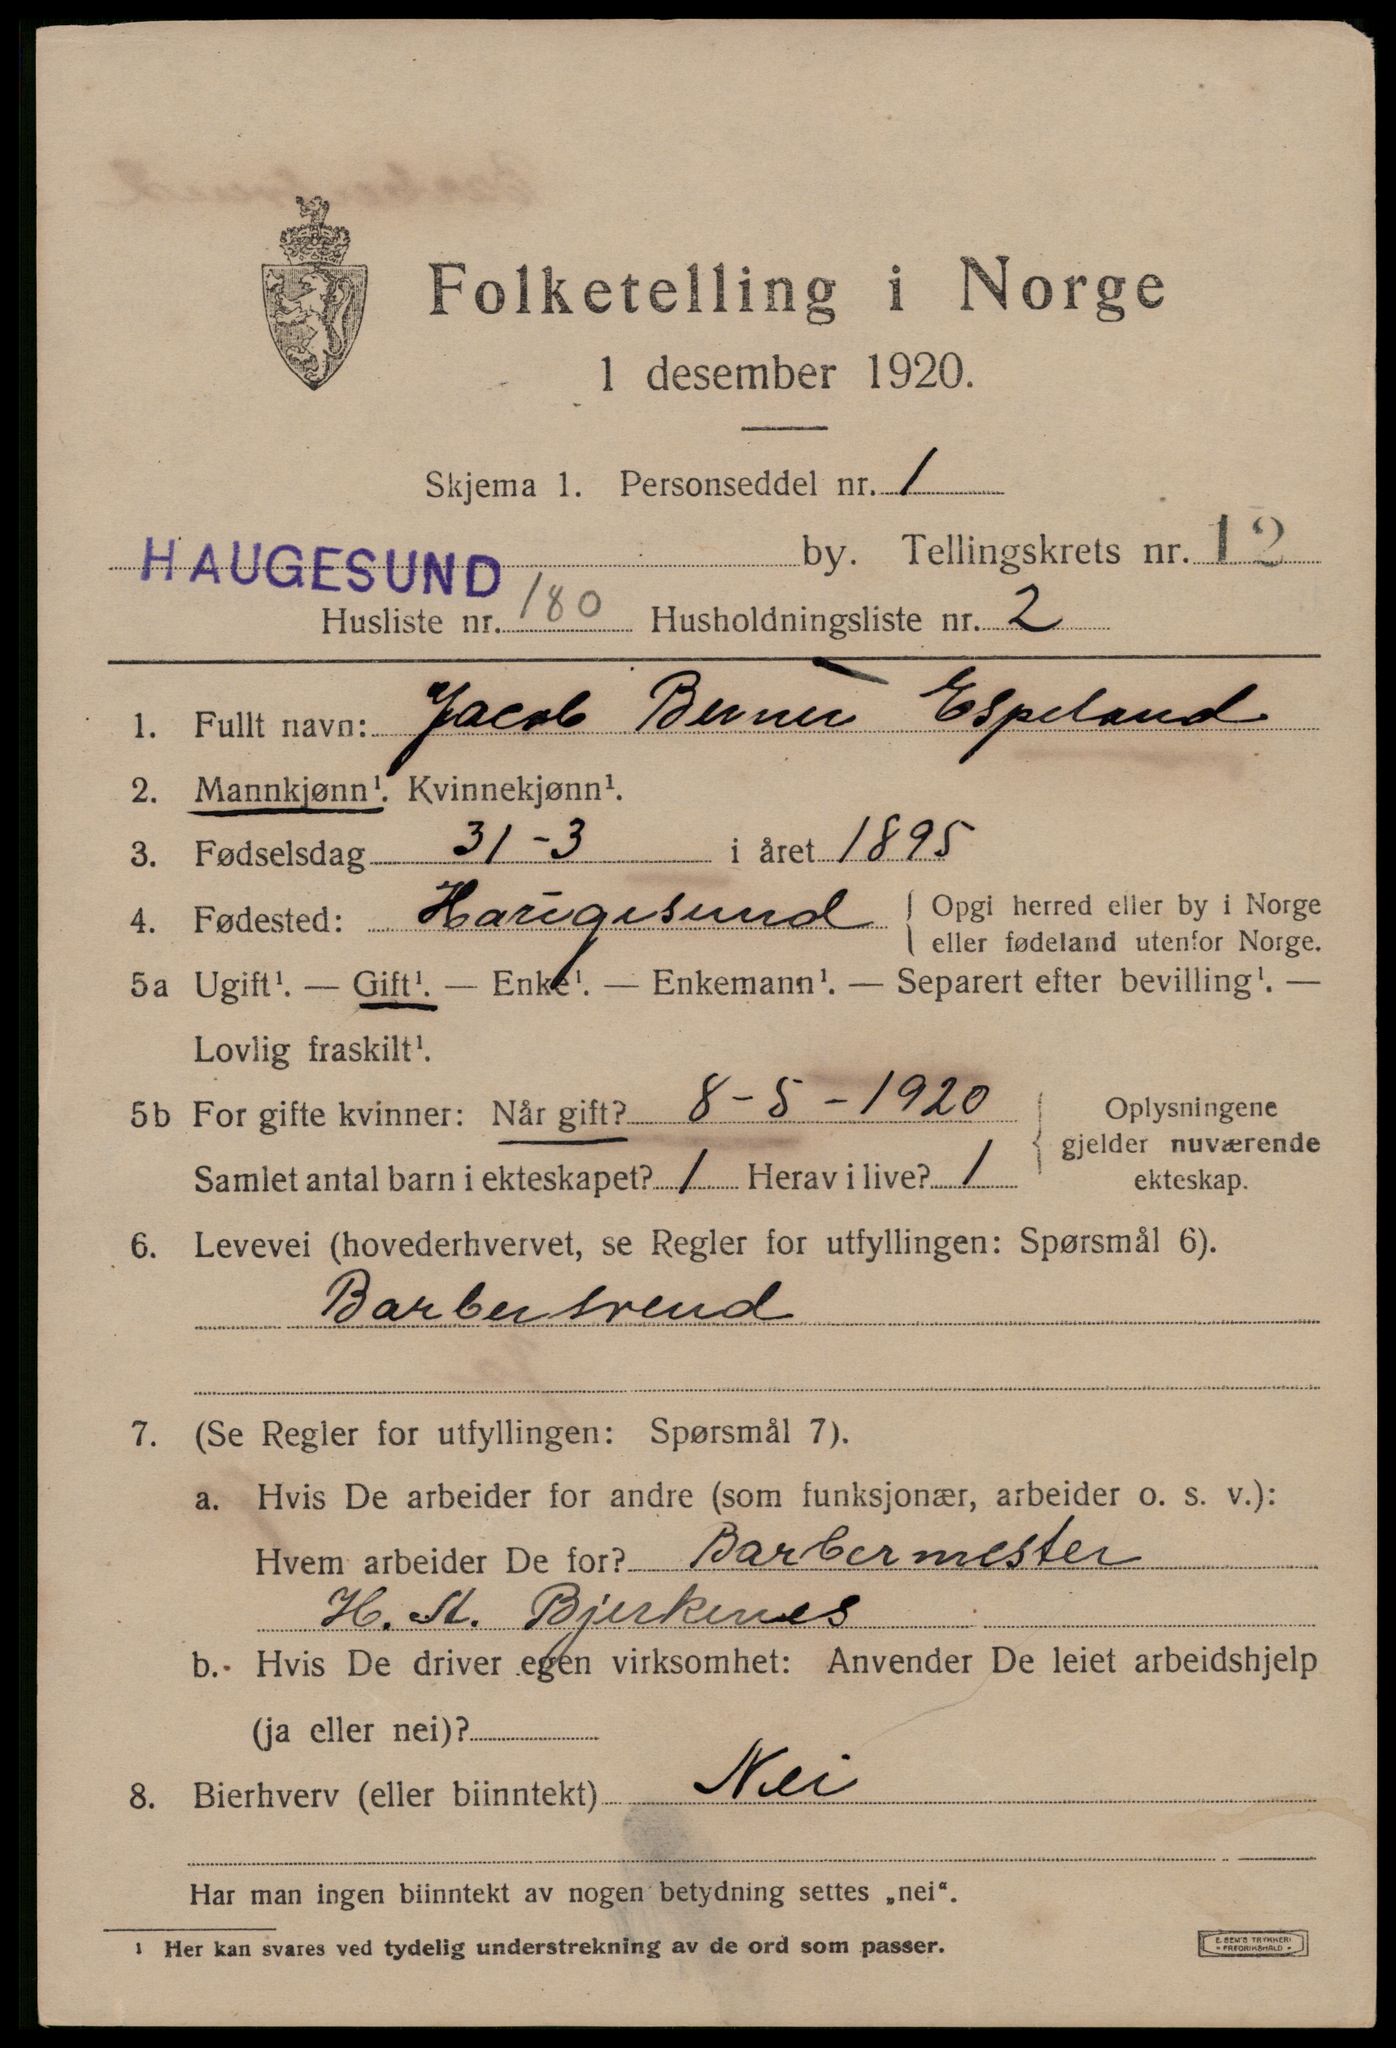 Folketelling i Norge
1 desember 1920.
Skjema 1. Personseddel nr. 1
HAUGESUND by. Tellingskrets nr. 12
Husliste nr. 180 Husholdningsliste nr. 2
1. Fullt navn: Jacob Berner Espeland
2. Mannkjønn¹. Kvinnekjønn¹.
3. Fødselsdag 31-3 i året 1895
4. Fødested: Haugesund { Opgi herred eller by i Norge
eller fødeland utenfor Norge.
5a Ugift¹. — Gift¹. — Enke¹. — Enkemann¹. — Separert efter bevilling¹. —
Lovlig fraskilt¹.
5b For gifte kvinner: Når gift? 8-5-1920 } Oplysningene
gjelder nuværende
Samlet antal barn i ekteskapet? 1 Herav i live? 1 ekteskap.
6. Levevei (hovederhvervet, se Regler for utfyllingen: Spørsmål 6).
Barbersvend
7. (Se Regler for utfyllingen: Spørsmål 7).
a. Hvis De arbeider for andre (som funksjonær, arbeider o. s. v.):
Hvem arbeider De for? Barbermester
H. St. Bjerkenes
b. Hvis De driver egen virksomhet: Anvender De leiet arbeidshjelp
(ja eller nei)?
8. Bierhverv (eller biinntekt) Nei
Har man ingen biinntekt av nogen betydning settes „nei“.
¹ Her kan svares ved tydelig understrekning av de ord som passer.
E. SEM'S TRYKKERI
FREDRIKSHALD